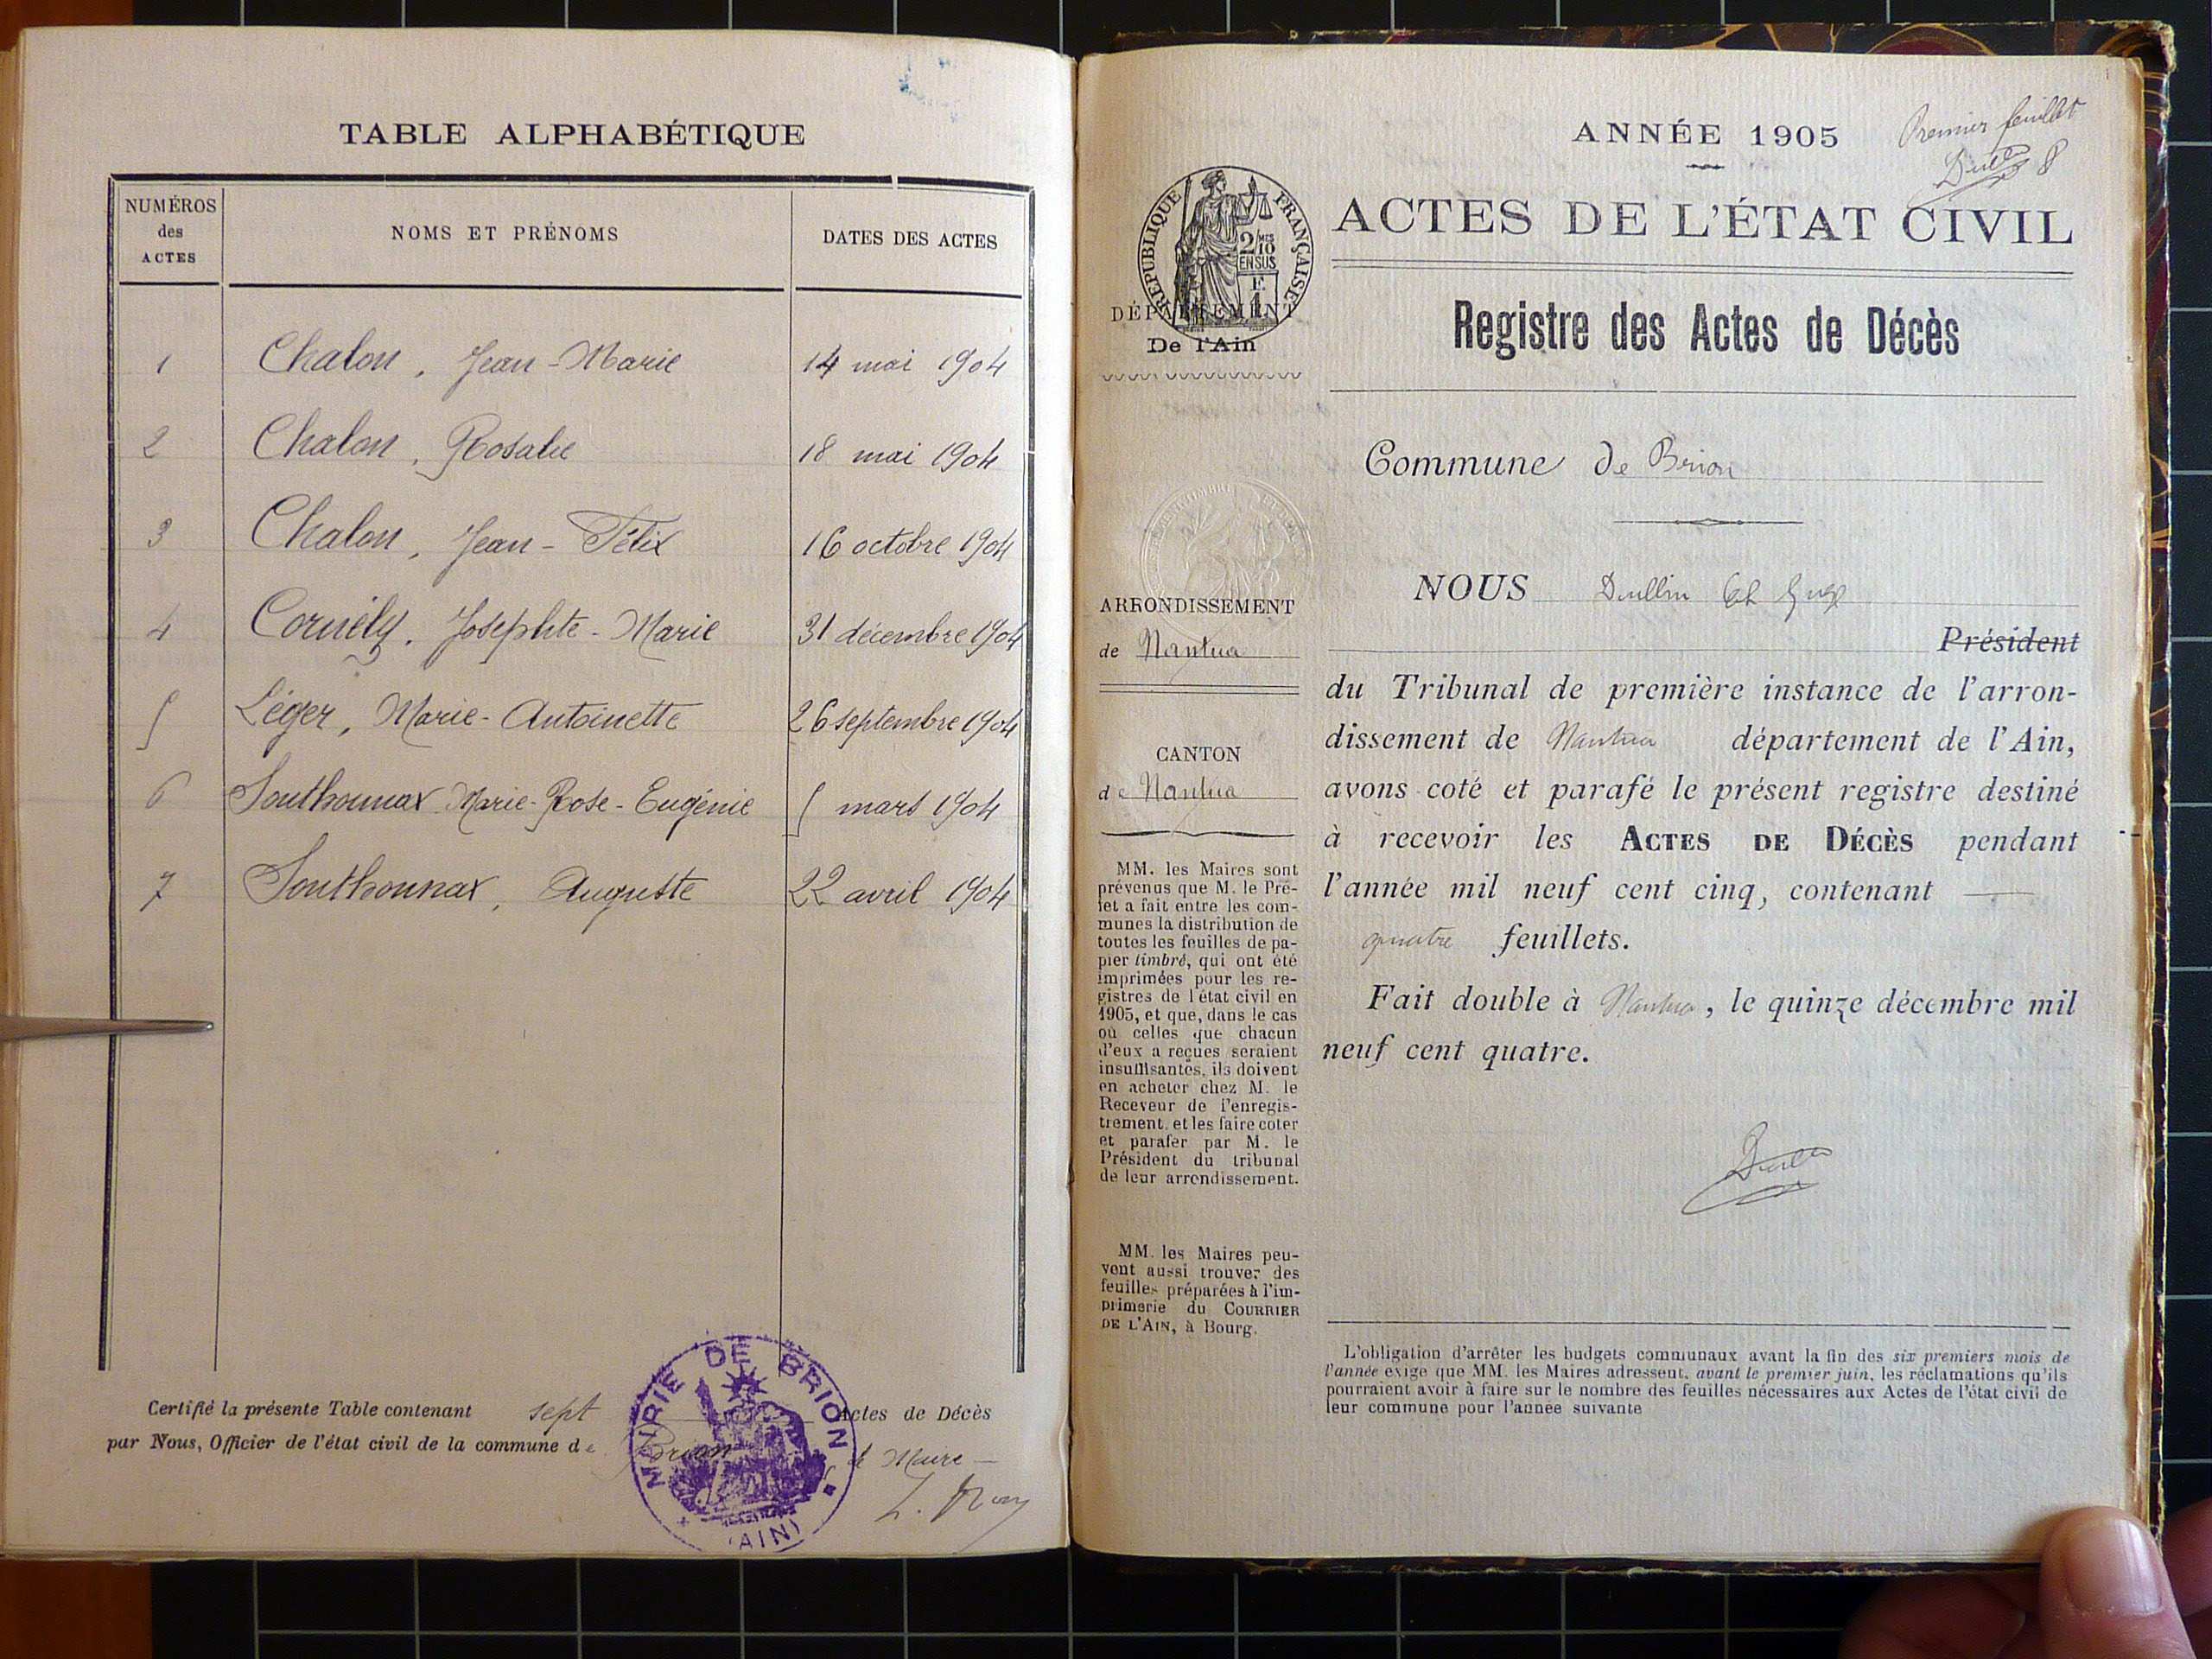 TABLE ALPHABÉTIQUE
NUMÉROS
des
ACTES
NOMS ET PRÉNOMS
DATES DES ACTES
1 Chalon, Jean-Marie 14 mai 1904
2 Chalon, Rosalie 18 mai 1904
3 Chalon, Jean-Félix 16 octobre 1904
4 Cornély, Josephte-Marie 31 décembre 1904
5 Léger, Marie-Antoinette 26 septembre 1904
6 Southonnax Marie-Rose-Eugénie 5 mars 1904
7 Southonnax, Auguste 22 avril 1904
Certifié la présente Table contenant sept Actes de Décès
par Nous, Officier de l'état civil de la commune de Brion
le Maire
MAIRIE DE BRION
(AIN)
Premier feuillet
ANNÉE 1905
ACTES DE L'ÉTAT CIVIL
Registre des Actes de Décès
RÉPUBLIQUE FRANÇAISE
2/10 MES
EN SUS
F.
1
DÉPARTEMENT
De l'Ain
Commune de Brion
ARRONDISSEMENT
de Nantua
CANTON
de Nantua
MM. les Maires sont
prévenus que M. le Pré-
fet a fait entre les com-
munes la distribution de
toutes les feuilles de pa-
pier timbré, qui ont été
imprimées pour les re-
gistres de l'état civil en
1905, et que, dans le cas
où celles que chacun
d'eux a reçues seraient
insuffisantes, ils doivent
en acheter chez M. le
Receveur de l'enregis-
trement, et les faire coter
et parafer par M. le
Président du tribunal
de leur arrondissement.
MM. les Maires peu-
vent aussi trouver des
feuilles préparées à l'im-
primerie du COURRIER
DE L'AIN, à Bourg.
NOUS Dullin
Président
du Tribunal de première instance de l'arron-
dissement de Nantua département de l'Ain,
avons coté et parafé le présent registre destiné
à recevoir les ACTES DE DÉCÈS pendant
l'année mil neuf cent cinq, contenant
quatre feuillets.
Fait double à Nantua, le quinze décembre mil
neuf cent quatre.
L'obligation d'arrêter les budgets communaux avant la fin des six premiers mois de
l'année exige que MM. les Maires adressent, avant le premier juin, les réclamations qu'ils
pourraient avoir à faire sur le nombre des feuilles nécessaires aux Actes de l'état civil de
leur commune pour l'année suivante